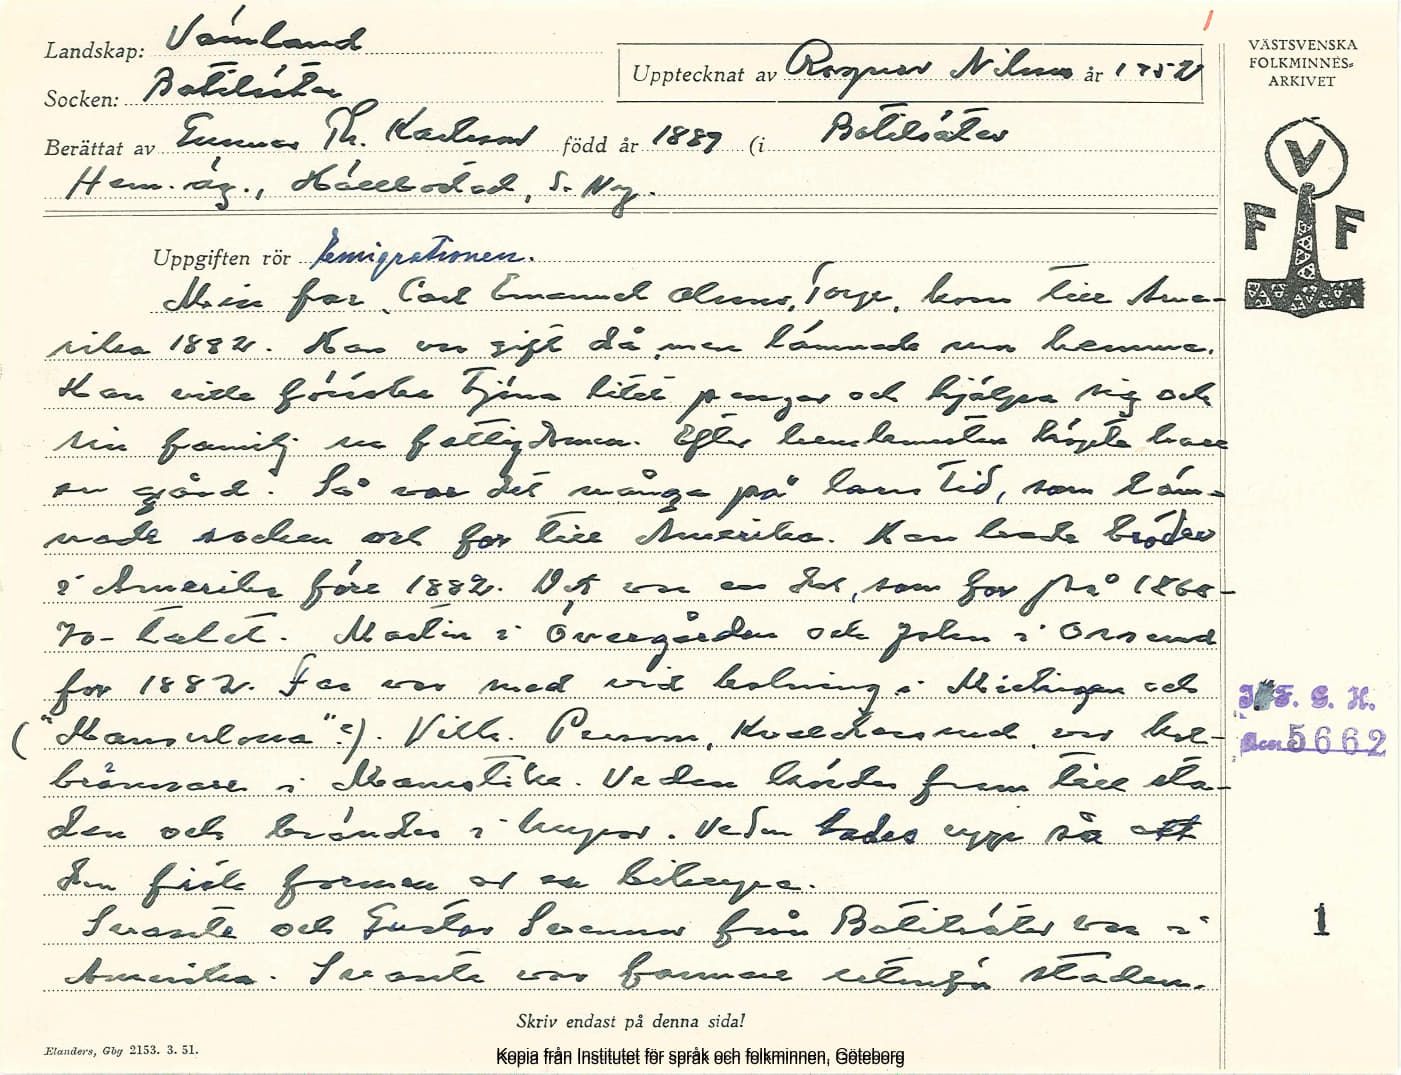 Landskap: Värmland
Socken: Botilsäter
Upptecknat av Ragnar Nilsson år 1952
Berättat av Gunnar Th. Karlsson född år 1889 (i Botilsäter
Hem. äg., Hällbostad, S. Ny.
VÄSTSVENSKA
FOLKMINNES-
ARKIVET
V
F F
Uppgiften rör Emigrationen.
Min far, Carl Emanuel Olsson, Torp, kom till Ame-
rika 1882. Han var gift då, men lämnade sin hemma.
Han ville försöka tjäna litet pengar och hjälpa sig och
sin familj ur fattigdomen. Efter hemkomsten köpte han
en gård. Så var det många på hans tid, som läm-
nade socken och for till Amerika. Han hade bröder
i Amerika före 1882. Det var en del, som for på 1860-
70-talet. Martin i Övergården och John i
for 1882. Far var med vid kolning i Michigan och
("?). Vilh. Person, var kol-
brännare i Manistike. Veden kördes fram till sta-
den och brändes i kupor. Veden lades upp så att
den fick formen av en bikupa.
Svante och Gustav från Botilsäter var i
Amerika. Svante var farmare utanför staden.
I. F. G. H.
5662
1
Skriv endast på denna sida!
Elanders, Gbg 2153. 3. 51.
Kopia från Institutet för språk och folkminnen, Göteborg